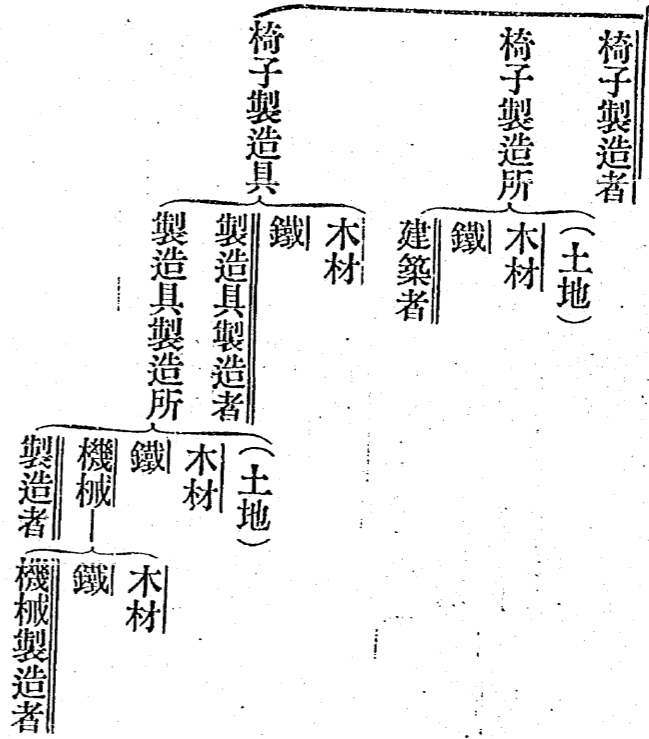 椅子製造者
椅子製造所
(土地)
木材
鐵
建築者
椅子製造具
木材
鐵
製造具製造者
製造具製造所
(土地)
木材
鐵
機械
製造者
木材
鐵
機械製造者